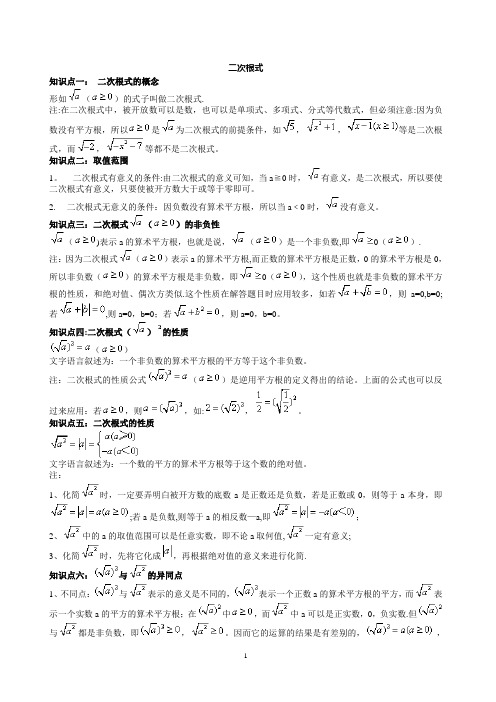 二次根式
知识点一： 二次根式的概念
形如√a（a≥0）的式子叫做二次根式.
注:在二次根式中，被开放数可以是数，也可以是单项式、多项式、分式等代数式，但必须注意:因为负
数没有平方根，所以a≥0是√a为二次根式的前提条件，如√5，√(x²+1)，√(x-1)(x≥1)等是二次根
式，而√-2，√(-x²-7)等都不是二次根式。
知识点二：取值范围
1。 二次根式有意义的条件:由二次根式的意义可知，当a≧0时，√a有意义，是二次根式，所以要使
二次根式有意义，只要使被开方数大于或等于零即可。
2. 二次根式无意义的条件：因负数没有算术平方根，所以当a﹤0时，√a没有意义。
知识点三：二次根式√a（a≥0）的非负性
√a（a≥0)表示a的算术平方根,也就是说，√a（a≥0）是一个非负数,即√a≥0（a≥0）.
注：因为二次根式√a（a≥0）表示a的算术平方根,而正数的算术平方根是正数，0的算术平方根是0，
所以非负数（a≥0）的算术平方根是非负数，即√a≥0（a≥0），这个性质也就是非负数的算术平方
根的性质，和绝对值、偶次方类似.这个性质在解答题目时应用较多，如若√a+√b=0，则 a=0,b=0;
若√a+|b|=0,则a=0，b=0；若√a+b²=0，则a=0，b=0。
知识点四:二次根式（√a）²的性质
(√a)²=a（a≥0）
文字语言叙述为：一个非负数的算术平方根的平方等于这个非负数。
注：二次根式的性质公式(√a)²=a（a≥0）是逆用平方根的定义得出的结论。上面的公式也可以反
过来应用：若a≥0，则a=(√a)²，如:2=(√2)²，1/2=(√(1/2))²。
知识点五：二次根式的性质
√a²=|a|={a(a≥0) -a(a<0)
文字语言叙述为：一个数的平方的算术平方根等于这个数的绝对值。
注：
1、化简√a²时，一定要弄明白被开方数的底数a是正数还是负数，若是正数或0，则等于a本身，即
√a²=|a|=a(a≥0);若a是负数,则等于a的相反数—a,即√a²=|a|=-a(a<0)；
2、√a²中的a的取值范围可以是任意实数，即不论a取何值,√a²一定有意义;
3、化简√a²时，先将它化成|a|，再根据绝对值的意义来进行化简.
知识点六：(√a)²与√a²的异同点
1、不同点：(√a)²与√a²表示的意义是不同的，(√a)²表示一个正数a的算术平方根的平方，而√a²表
示一个实数a的平方的算术平方根；在(√a)²中a≥0，而√a²中a可以是正实数，0，负实数.但(√a)²
与√a²都是非负数，即(√a)²≥0，√a²≥0。因而它的运算的结果是有差别的，(√a)²=a(a≥0)，
1